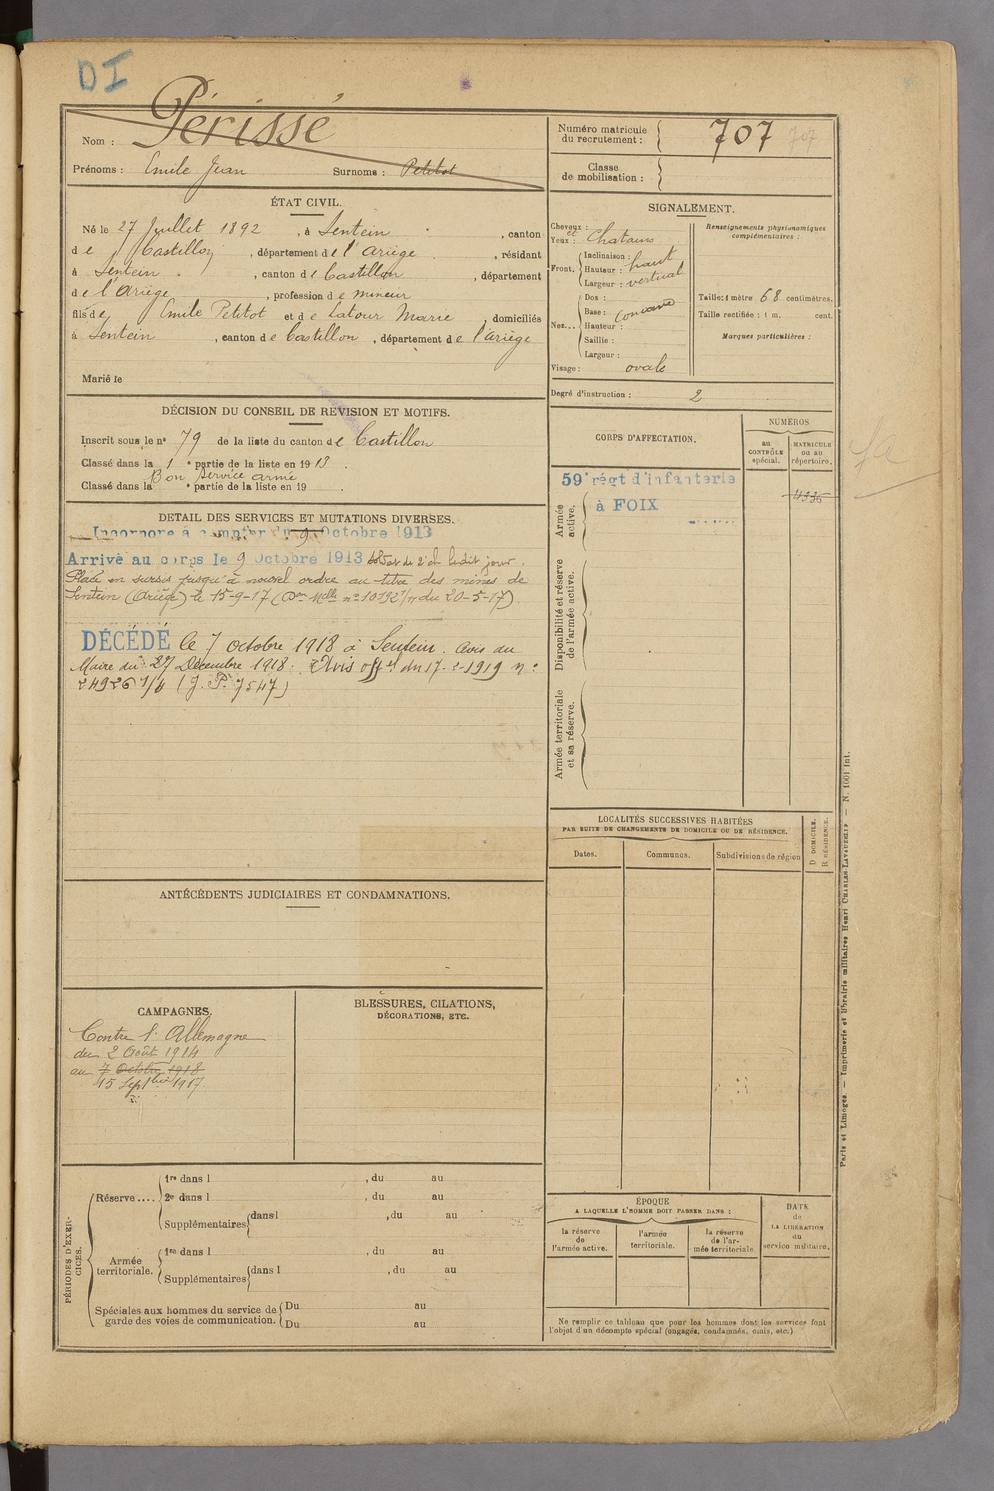 DI
Nom : Périssé
Prénoms : Emile Jean Surnoms : Petitot
Numéro matricule du recrutement : 707 707
Classe de mobilisation :
ÉTAT CIVIL.
Né le 27 Juillet 1892, à Sentein, canton
de Castillon, département de l'Ariège, résidant
à Sentein, canton de Castillon, département
de l'Ariège, profession de mineur
fils de Emile Petitot et de Latour Marie, domiciliés
à Sentein, canton de Castillon, département de l'Ariège
Marié le
SIGNALEMENT.
Cheveux :
Yeux : et Chatains
Front. Inclinaison : haut
Hauteur : vertical
Largeur :
Nez... Dos :
Base : concave
Hauteur :
Saillie :
Largeur :
Visage : ovale
Renseignements physionomiques complémentaires :
Taille : 1 mètre 68 centimètres.
Taille rectifiée : 1 m. cent.
Marques particulières :
Degré d'instruction : 2
DÉCISION DU CONSEIL DE REVISION ET MOTIFS.
Inscrit sous le n° 79 de la liste du canton de Castillon
Classé dans la 1e partie de la liste en 1913.
Bon service armé
Classé dans la e partie de la liste en 19 .
DÉTAIL DES SERVICES ET MUTATIONS DIVERSES.
Incorporé à compter du 9 Octobre 1913
Arrivé au corps le 9 Octobre 1913 Soldat de 2e cl. ledit jour.
Placé en sursis jusqu'à nouvel ordre au titre des mines de
Sentein (Ariège) le 15-9-17 du 20-5-17)
DÉCÉDÉ le 7 octobre 1918 à Sentein. Avis du
Maire du 27 Décembre 1918. Avis off el du 17-2-1919 n°
(J. P. 7547)
CORPS D'AFFECTATION.
NUMÉROS
au CONTRÔLE spécial.
MATRICULE ou au répertoire.
59e régt d'infanterie
à FOIX
4336
Armée active.
Disponibilité et réserve de l'armée active.
Armée territoriale et sa réserve.
LOCALITÉS SUCCESSIVES HABITÉES
PAR SUITE DE CHANGEMENTS DE DOMICILE OU DE RÉSIDENCE.
Dates.
Communes.
Subdivisions de région
D DOMICILE.
R RÉSIDENCE.
ANTÉCÉDENTS JUDICIAIRES ET CONDAMNATIONS.
CAMPAGNES.
Contre l'Allemagne
du 2 Août 1914
au 7 Octobre 1918
15 Septbre 1917
BLESSURES, CITATIONS,
DÉCORATIONS, ETC.
PÉRIODES D'EXERCICES.
Réserve.... 1re dans l , du au
2e dans l , du au
Supplémentaires dans l , du au
Armée territoriale. 1re dans l , du au
Supplémentaires dans l , du au
Spéciales aux hommes du service de garde des voies de communication. Du au
Du au
ÉPOQUE
A LAQUELLE L'HOMME DOIT PASSER DANS :
la réserve de l'armée active.
l'armée territoriale.
la réserve de l'armée territoriale.
DATE de LA LIBÉRATION du service militaire.
Ne remplir ce tableau que pour les hommes dont les services font
l'objet d'un décompte spécial (engagés, condamnés, omis, etc.)
Paris et Limoges. — Imprimerie et librairie militaires Henri CHARLES-LAVAUZELLE — N. 1001 int.